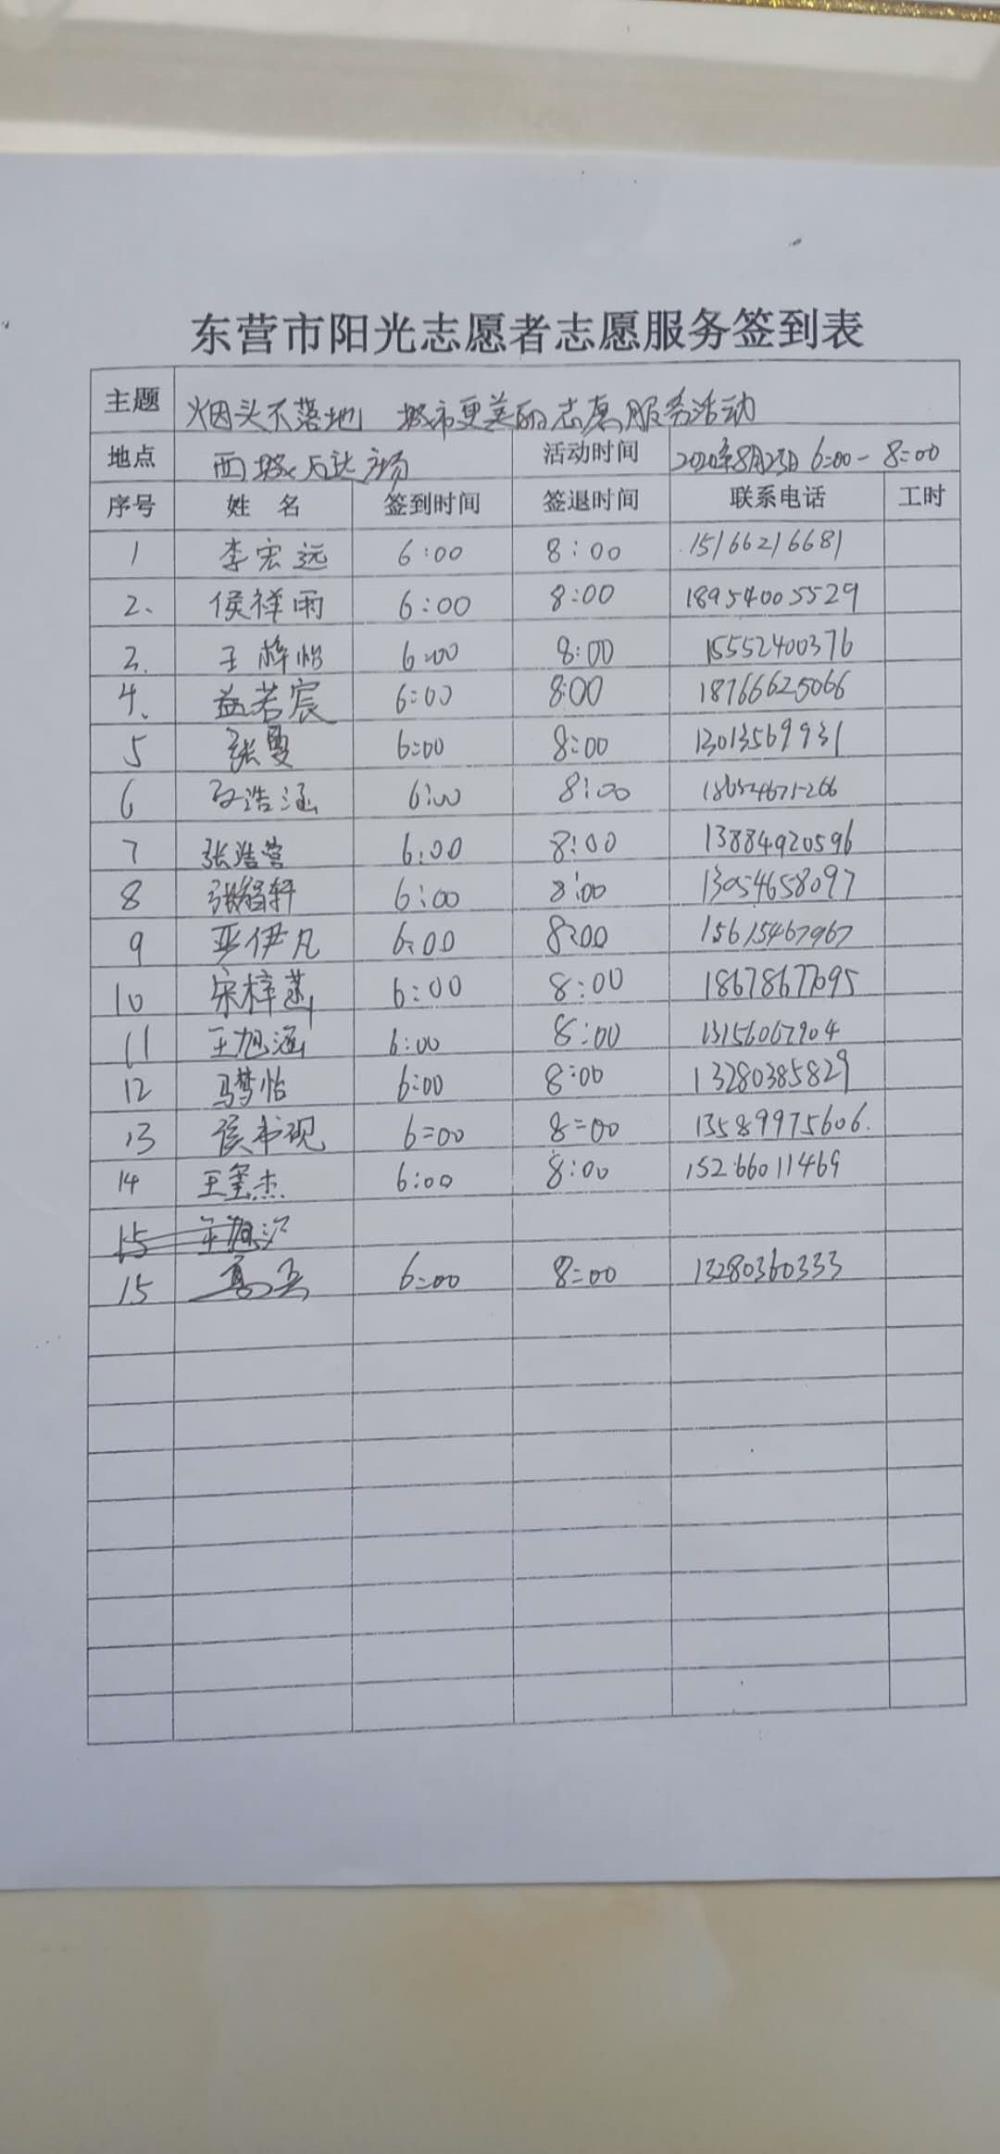 东营市阳光志愿者志愿服务签到表
主题 烟头不落地 城市更美丽志愿服务活动
地点 西城万达广场 活动时间 2020年8月23日 6:00-8:00
序号 姓名 签到时间 签退时间 联系电话 工时
1 李宏远 6:00 8:00 15166216681
2、 侯祥雨 6:00 8:00 18954005529
3、 王梓怡 6:00 8:00 15552400376
4、 盖若宸 6:00 8:00 18766625066
5 张曼 6:00 8:00 13013569931
6 浩涵 6:00 8:00
7 张浩营 6:00 8:00 13884920596
8 轩 6:00 8:00 13054658097
9 伊凡 6:00 8:00 15615467967
10 宋梓菡 6:00 8:00
11 王旭涵 6:00 8:00 13156067904
12 马梦怡 6:00 8:00 13280385829
13 书砚 6:00 8:00 13589975606.
14 王玺杰 6:00 8:00 15266011469
15
15 6:00 8:00 13280360333